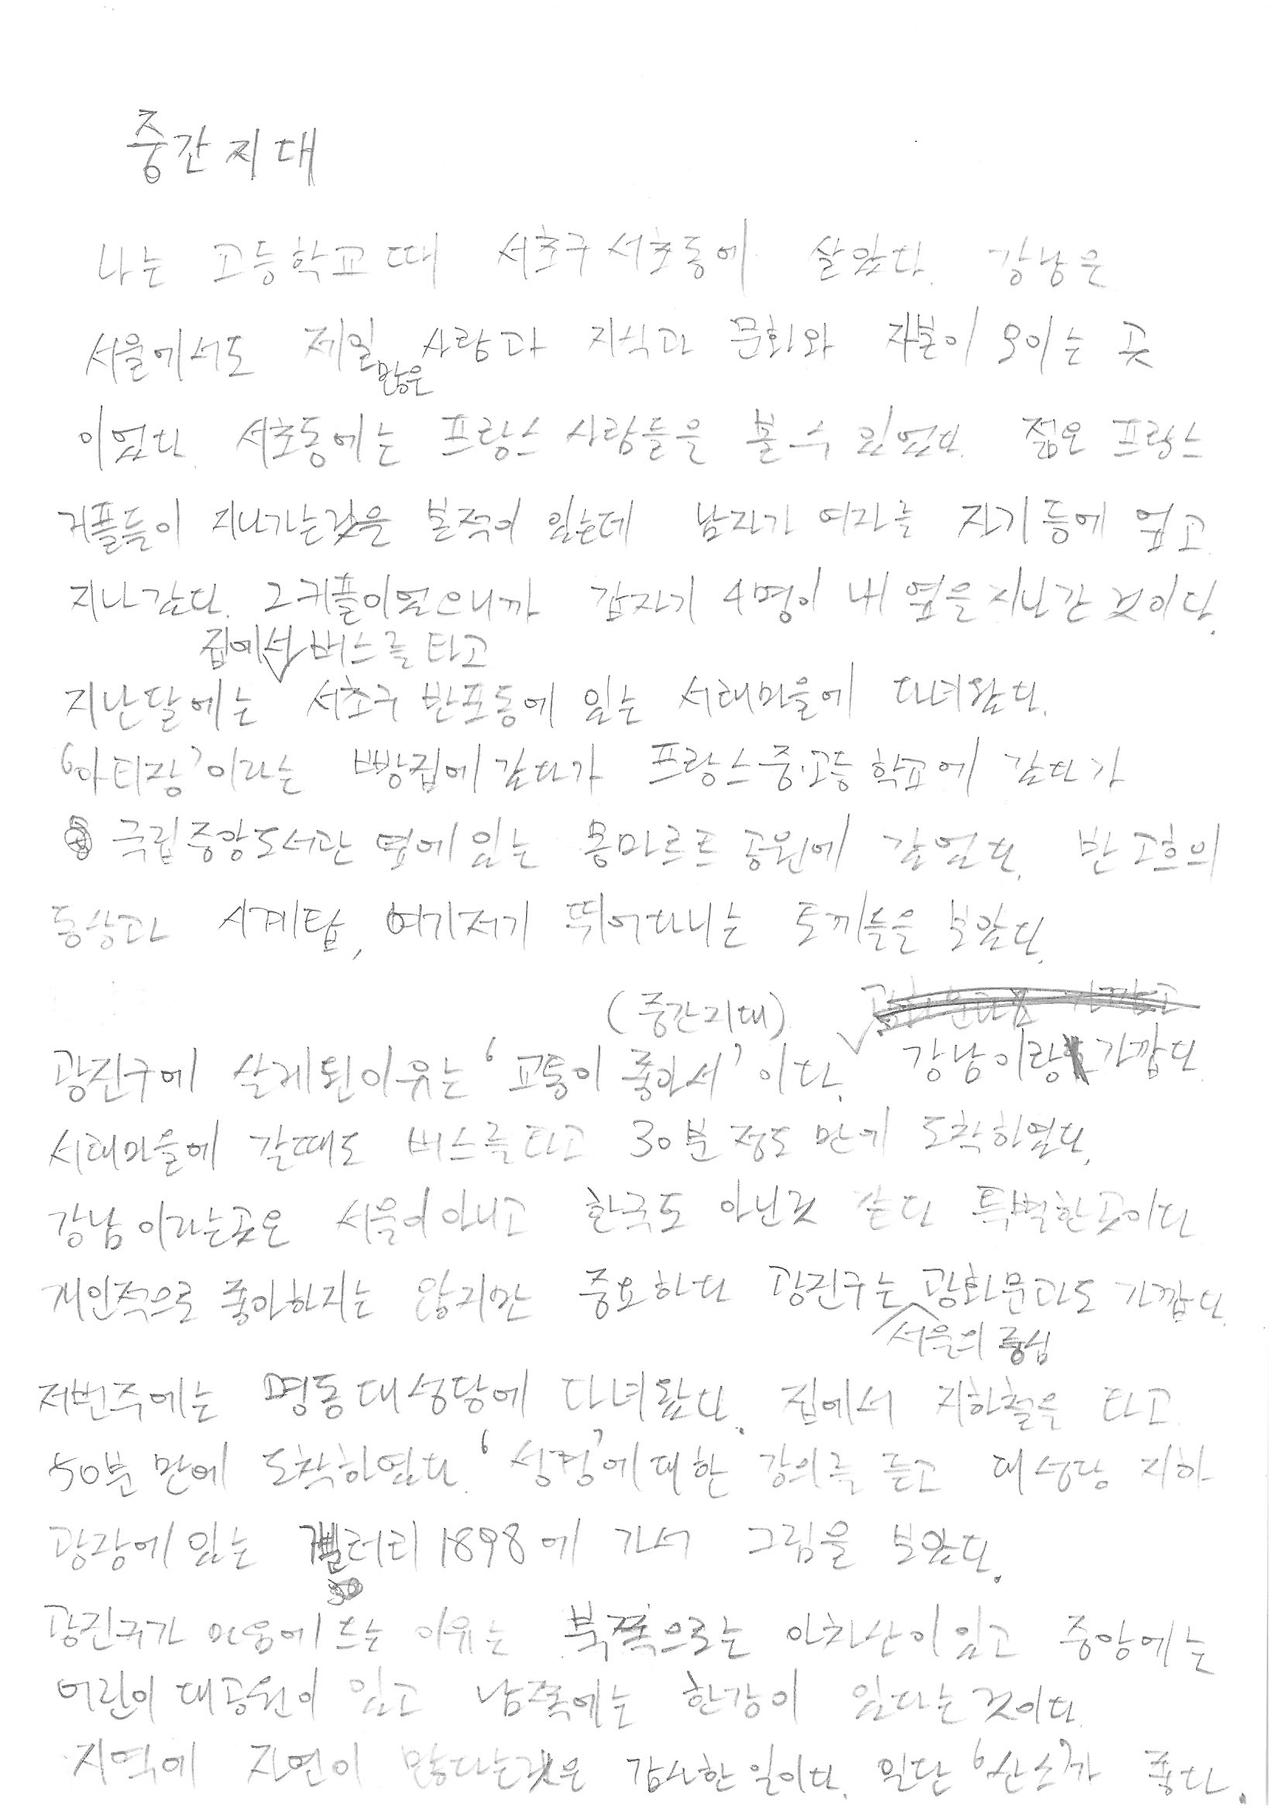 중간지대
나는 고등학교 때 서초구 서초동에 살았다. 강남은
서울에서도 제일 많은 사람과 지식과 문화와 자본이 모이는 곳
이었다. 서초동에는 프랑스 사람들을 볼 수 있었다. 젊은 프랑스
커플들이 지나가는것을 본적이 있는데 남자가 여자를 자기 등에 업고
지나갔다. 2커플이었으니까 갑자기 4명이 내 옆을 지나간 것이다.
지난달에는 집에서 버스를 타고 서초구 반포동에 있는 서래마을에 다녀왔다.
'아티장'이라는 빵집에 갔다가 프랑스 중·고등학교에 갔다가
국립중앙도서관 옆에 있는 몽마르트 공원에 갔었다. 반 고흐의
동상과 시계탑, 여기저기 뛰어다니는 토끼들을 보았다.
(중간지대)
광진구에 살게된 이유는 '교통이 좋아서'이다. 강남이랑 가깝다
서래마을에 갈때도 버스를 타고 30분 정도 만에 도착하였다.
강남이라는곳은 서울이 아니고 한국도 아닌것 같다 특별한 곳이다
개인적으로 좋아하지는 않지만 중요하다 광진구는 서울의 중심 광화문과도 가깝다.
저번주에는 명동대성당에 다녀왔다. 집에서 지하철을 타고
50분 만에 도착하였다. '성경'에 대한 강의를 듣고 대성당 지하
광장에 있는 갤러리 1898에 가서 그림을 보았다.
광진구가 마음에 드는 이유는 북쪽으로는 아차산이 있고 중앙에는
어린이 대공원이 있고 남쪽에는 한강이 있다는 것이다.
지역에 자연이 많다는것은 감사한 일이다. 일단 '산소'가 좋다.